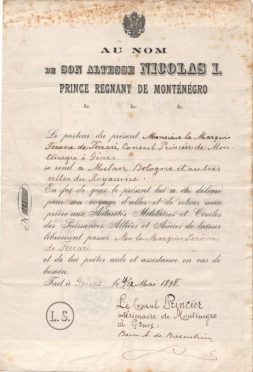 AU NOM
DE SON ALTESSE NICOLAS I.
PRINCE REGNANT DE MONTÉNÉGRO
&. &. &.
Le porteur du présent Monsieur le Marquis
de Ferrari, Consul Princier de Mon
ténégro à Gênes
se rend à Milan, Bologne et autres
villes du Royaume
En foi de quoi le présent lui a été délivré
pour son voyage d'aller et de retour avec
prière aux Autorités Militaires et Civiles
des Puissances Alliées et Amies de laisser
librement passer Mons le Marquis
de Ferrari
et de lui prêter aide et assistance en cas de
besoin.
Fait à Gênes Mai 1898.
Le Consul Princier
de Monténégro
à Gênes
L. S.